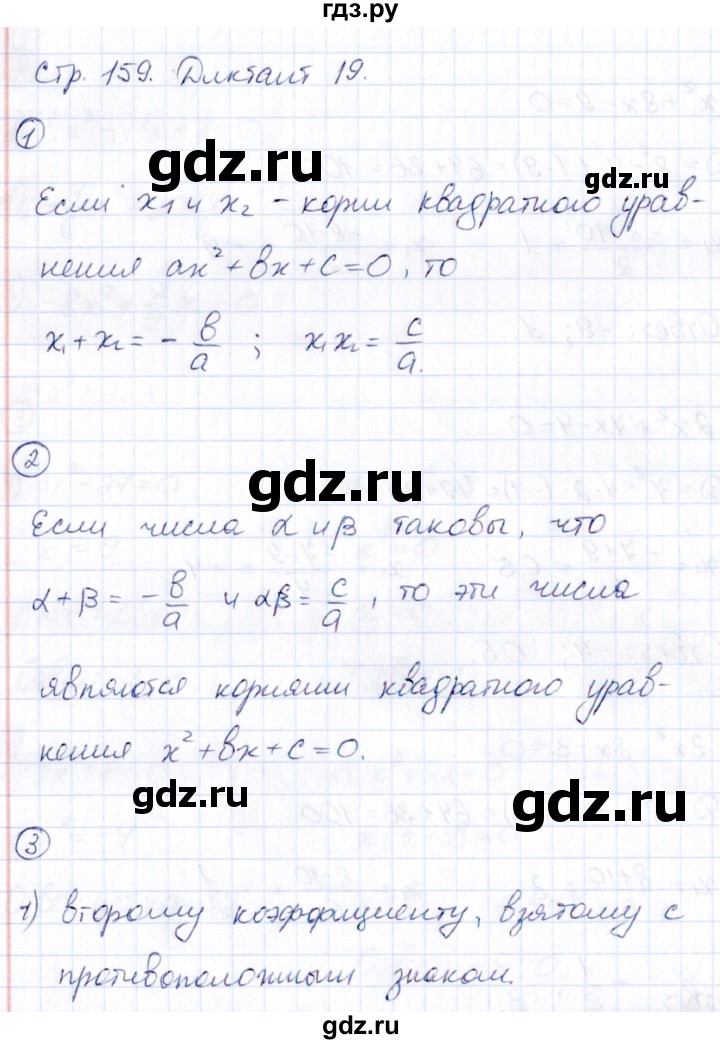 гдз.ру
Стр. 159. Диктант 19.
1
gdz.ru
gdz.ru
Если x₁ и x₂ - корни квадратного урав-
нения ax²+bx+c=0, то
x₁+x₂ = - b/a ; x₁x₂ = c/a.
2
gdz.ru
Если числа α и β таковы, что
α+β = - b/a и αβ = c/a, то эти числа
являются корнями квадратного урав-
нения x²+bx+c=0.
gdz.ru
gdz.ru
3
1) второму коэффициенту, взятому с
противоположным знаком.
gdz.ru